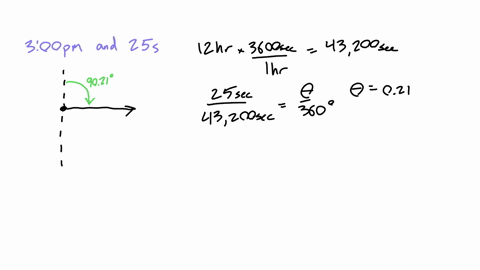 3:00pm and 25s
12hr × 3600sec / 1hr = 43,200sec
90.21°
25sec / 43,200sec = θ / 360°
θ = 0.21